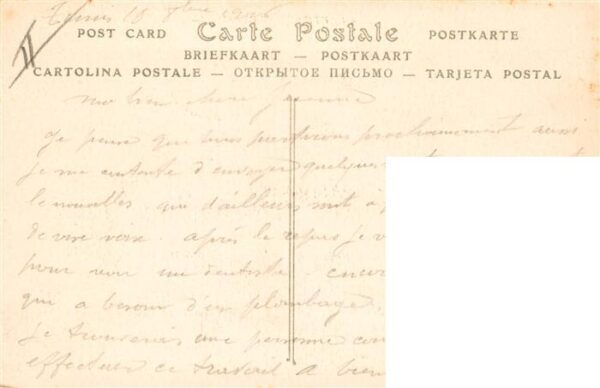 Tunis 18 8bre
II
Carte Postale
POST CARD POSTKARTE
BRIEFKAART — POSTKAART
CARTOLINA POSTALE — ОТКРЫТОЕ ПИСЬМО — TARJETA POSTAL
Ma bien chère Jeanne
Je pense que nous prochainement aussi
je me contente d'envoyer quelques
de nouvelles qui d'ailleurs à
de vive voix. après le repas je v
pour voir un dentiste.
qui a besoin d'un plombage.
Je trouverais une personne
effectuer ce travail a bien